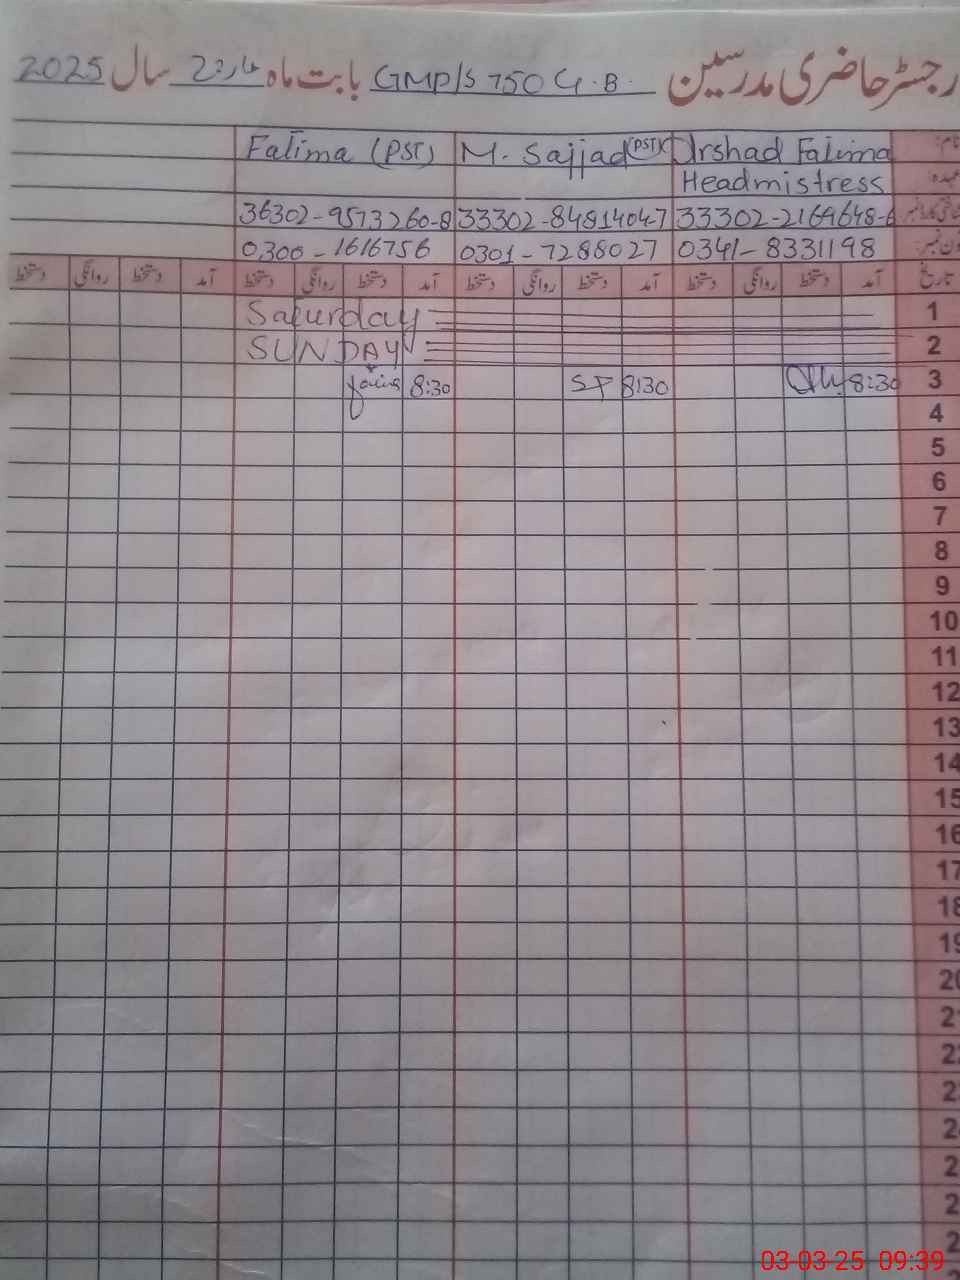 رجسٹر حاضری مدرسین GMP/S 750 G.B. بابت ماہ مارچ سال 2025
نام: Irshad Fatima M. Sajjad (PST) Fatima (PST)
عہدہ: Headmistress
33302-2169648-6 33302-8481404-7 36302-9573260-8
فون نمبر: 0341-8331198 0301-7288027 0300-1616756
تاریخ آمد دستخط روانگی دستخط آمد دستخط روانگی دستخط آمد دستخط روانگی دستخط آمد دستخط روانگی دستخط
1 Saturday
2 SUNDAY
3 8:30 8:30 8:30
4
5
6
7
8
9
10
11
12
13
14
15
16
17
18
19
20
03-03-25 09:39